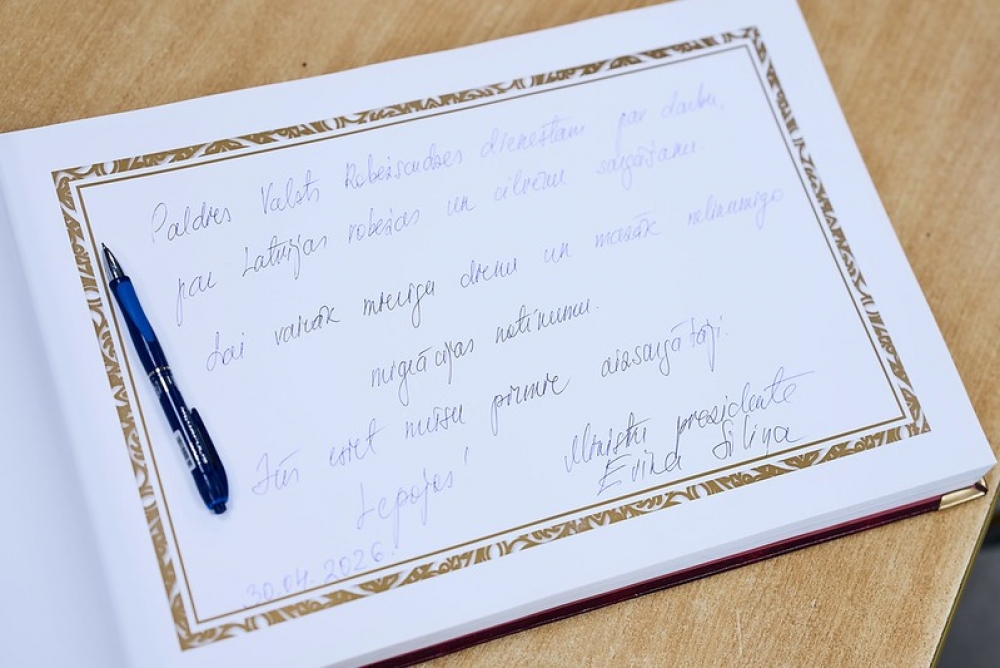 Paldies Valsts Robežsardzes dienestam par darbu,
par Latvijas robežas un cilvēku sargāšanu.
Lai vairāk mierīgu dienu un mazāk nelikumīgo
migrācijas notikumu.
Jūs esiet mūsu pirmie aizsargātāji.
Lepojos!
Ministru prezidente
Evika Siliņa
30.04.2026.